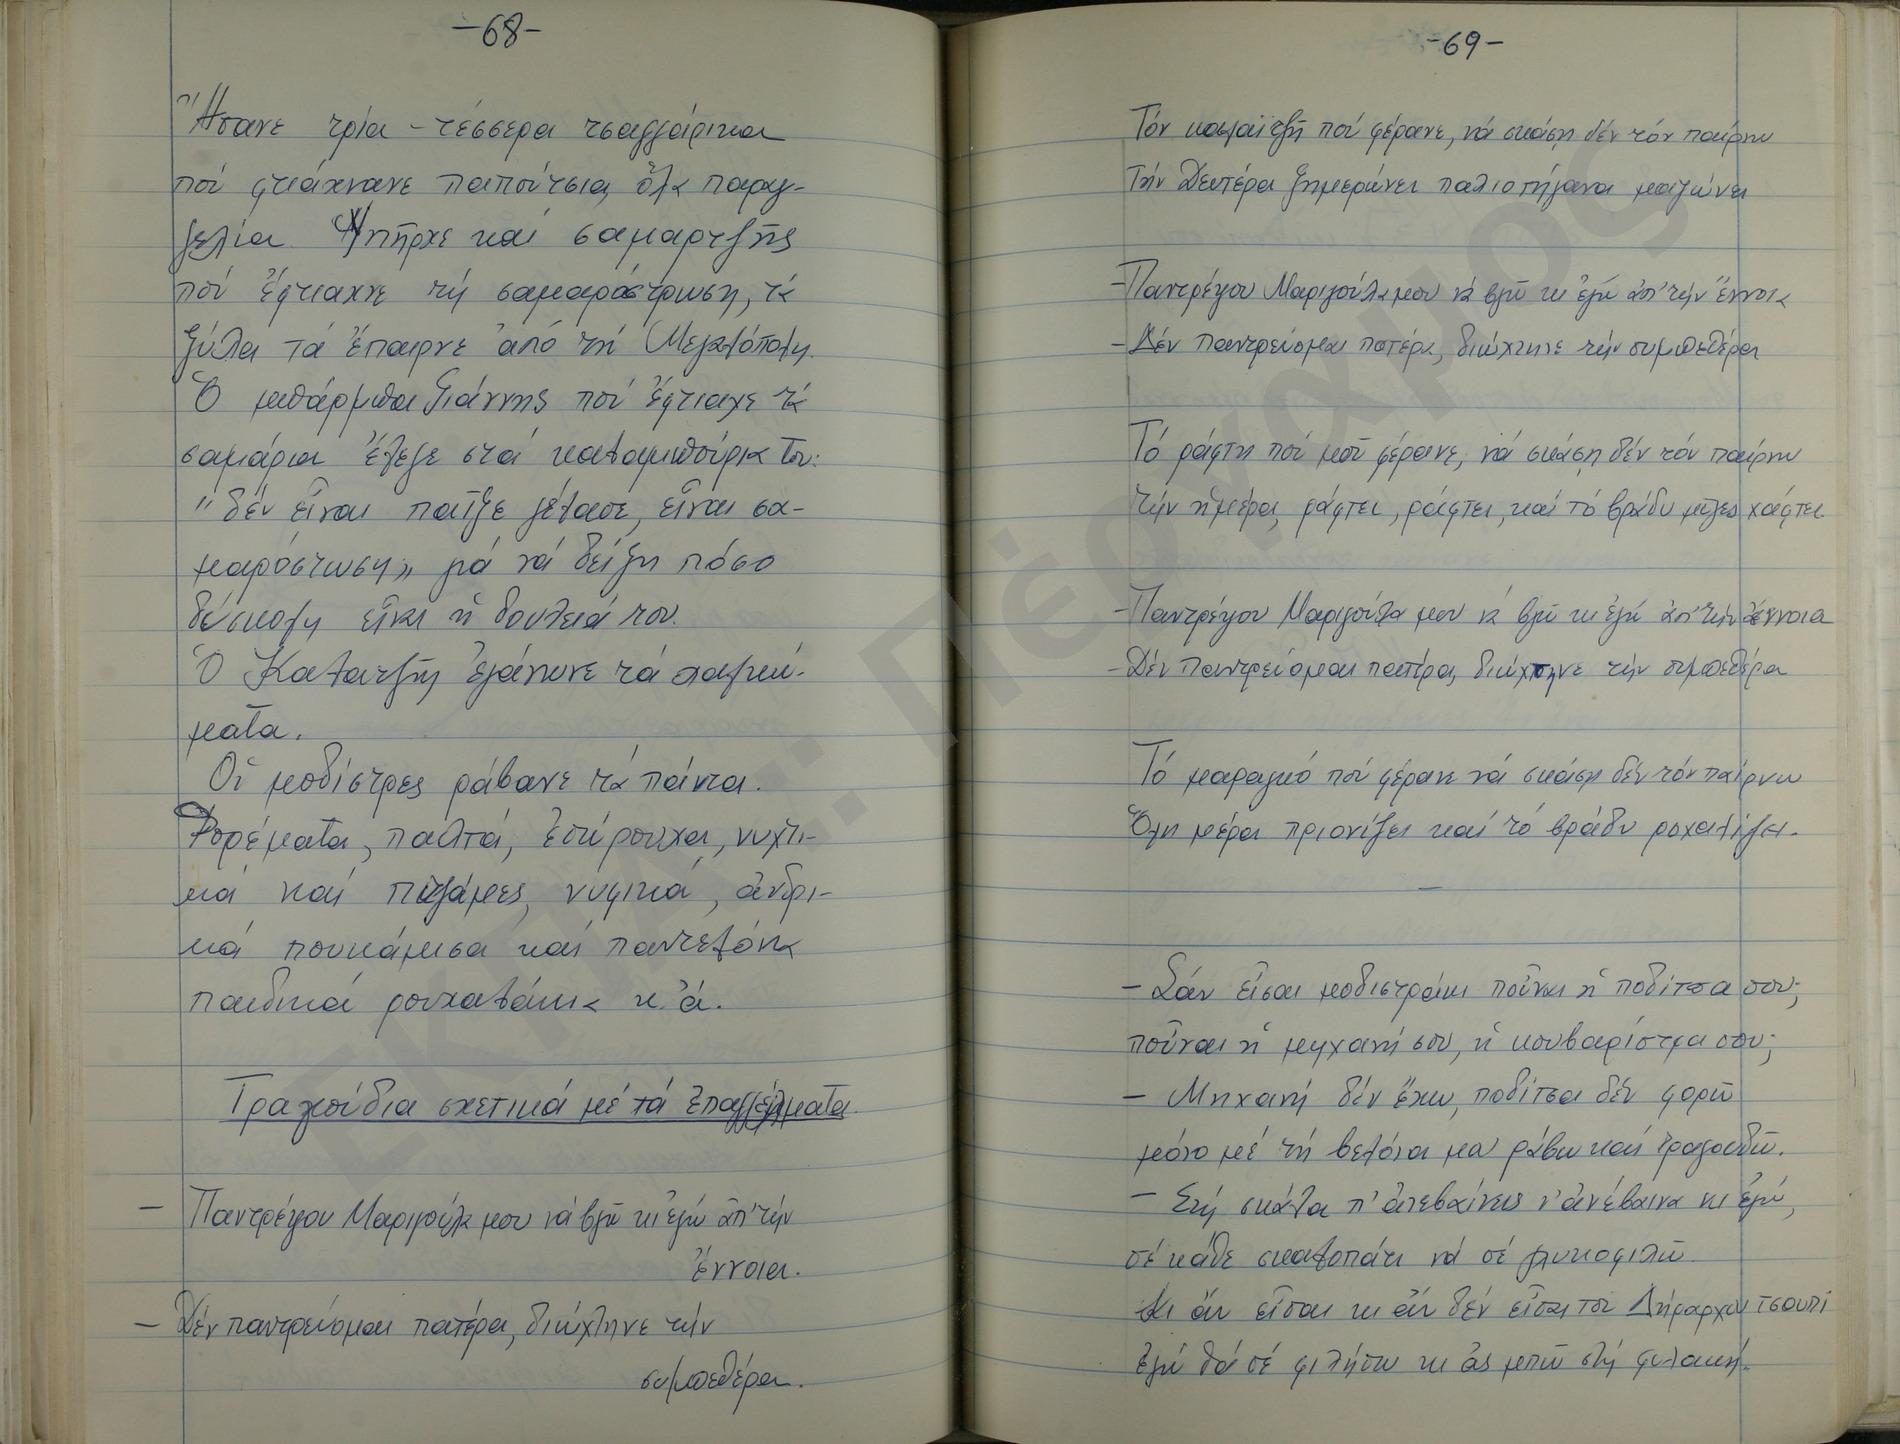 -68-
Ἤτανε τρία - τέσσερα τσαγγάρικα
πού φτιάχνανε παπούτσια, ὅλα παραγ-
γελία. Ὑπῆρχε καί σαμαρτζῆς
πού ἔφτιαχνε τή σαμαρόστρωση, τά
ξύλα τά ἔπαιρνε ἀπό τή Μεγαλόπολη.
Ὁ μπάρμπα Γιάννης πού ἔφτιαχε τά
σαμάρια ἔλεγε στά καλαμπούρια του:
"δέν εἶναι παῖξε γέλασε, εἶναι σα-
μαρόστωση„ γιά νά δείξη πόσο
δύσκολη εἶναι ἡ δουλειά του.
Ὁ Καλατζῆς ἐγάνωνε τά χαλκώ-
ματα.
Οἱ μοδίστρες ράβανε τά πάντα.
Φορέματα, παλτά, ἐσώρουχα, νυχτι-
κά καί πιτζάμες, νυφικά, ἀνδρι-
κά πουκάμισα καί παντελόνια
παιδικά ρουχαλάκια κ.ἄ.
Τραγούδια σχετικά μέ τά ἐπαγγέλματα.
- Παντρέψου Μαριγούλα μου νά βγῶ κι ἐγώ ἀπ' τήν
ἔννοια.
- Δέν παντρεύομαι πατέρα, διώχτηνε τήν
συμπεθέρα.
-69-
Τόν καλαϊτζῆ πού φέρανε, νά σκάση δέν τόν παίρνω
Τήν Δευτέρα ξημερώνει παλιοτήγανα μαζώνει
- Παντρέψου Μαριγούλα μου νά βγῶ κι ἐγώ ἀπ' τήν ἔννοια
- Δέν παντρεύομαι πατέρα, διώχτηνε τήν συμπεθέρα
Τό ράφτη πού μοῦ φέρανε, νά σκάση δέν τόν παίρνω
τήν ἡμέρα, ράφτει, ράφτει, καί τό βράδυ μῦγες χάφτει
- Παντρέψου Μαριγούλα μου νά βγῶ κι ἐγώ ἀπ' τήν ἔννοια
- Δέν παντρεύομαι πατέρα, διώχτηνε τήν συμπεθέρα
Τό μαραγκό πού φέρανε νά σκάση δέν τόν παίρνω
Ὅλη μέρα πριονίζει καί τό βράδυ ροχαλίζει.
-
- Σάν εἶσαι μοδιστράκι ποὖναι ἡ ποδίτσα σου;
ποὖναι ἡ μηχανή σου, ἡ κουβαρίστρα σου;
- Μηχανή δέν ἔχω, ποδίτσα δέν φορῶ
μόνο μέ τή βελόνα μου ράβω καί τραγουδῶ.
- Στή σκάλα π' ἀνεβαίνεις ν' ἀνέβαινα κι ἐγώ,
σέ κάθε σκαλοπάτι νά σέ γλυκοφιλῶ
Κι ἄν εἶσαι κι ἄν δέν εἶσαι τοῦ Δήμαρχου τσουπί
ἐγώ θά σέ φιλήσω κι ἄς μπῶ στή φυλακή.
ΕΚΠΑ: Πέργαμος